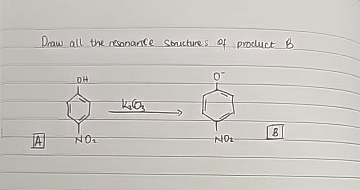 Draw all the resonance structures of product B
OH
O⁻
K₂CO₃
NO₂
NO₂
A
B